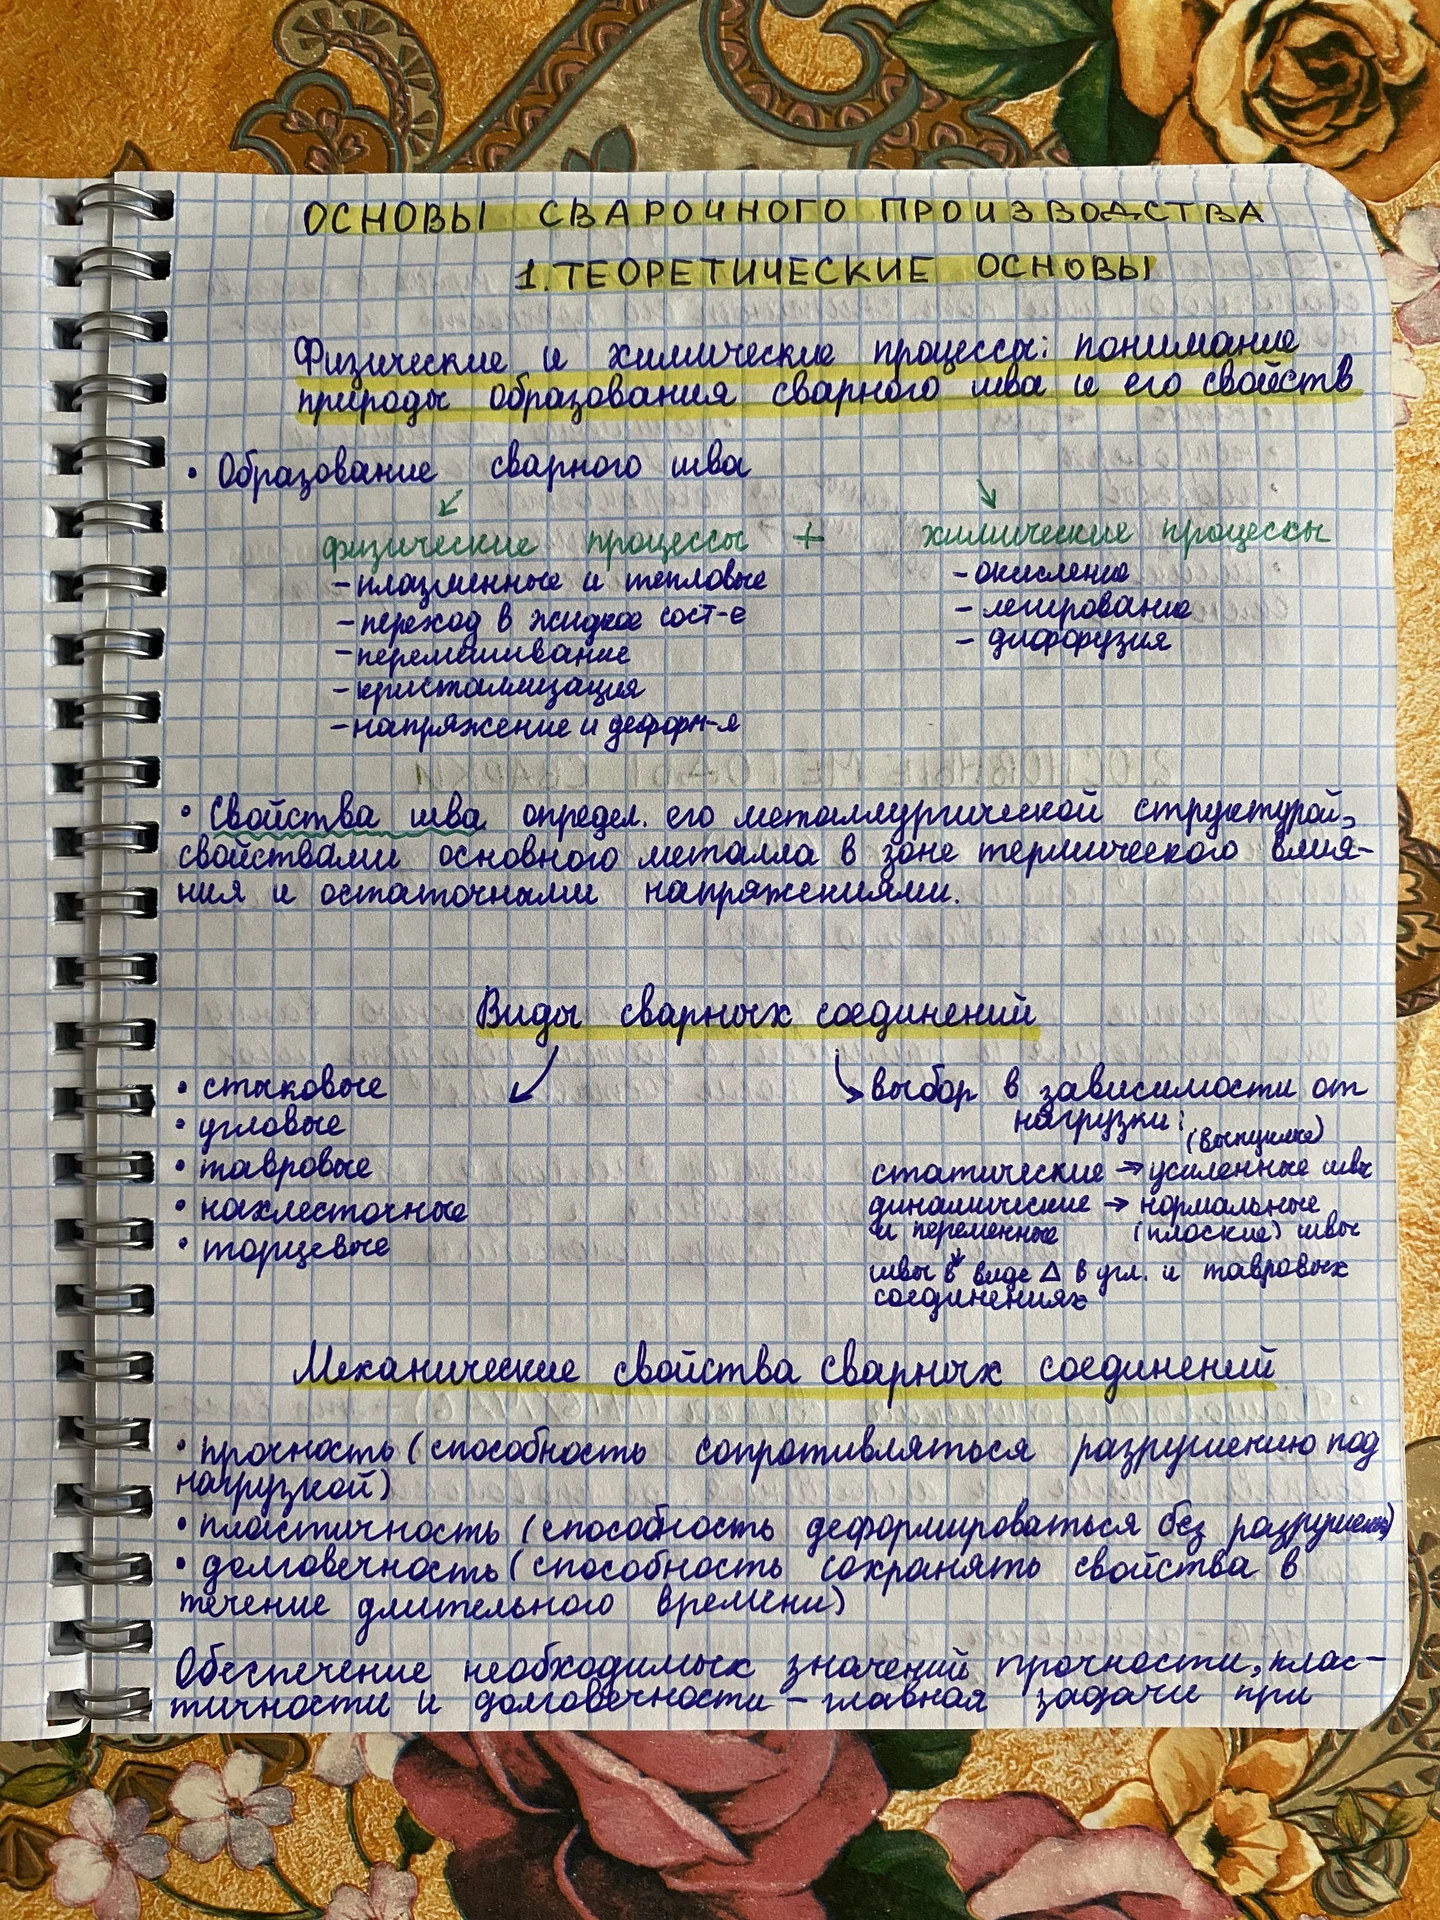 ОСНОВЫ СВАРОЧНОГО ПРОИЗВОДСТВА
1. ТЕОРЕТИЧЕСКИЕ ОСНОВЫ
Физические и химические процессы: понимание
природы образования сварного шва и его свойств
• Образование сварного шва
физические процессы + химические процессы
– плазменные и тепловые
– переход в жидкое сост-е
– перемешивание
– кристаллизация
– напряжение и деформ-я
– окисление
– легирование
– диффузия
• Свойства шва определ. его металлургической структурой,
свойствами основного металла в зоне термического влия-
ния и остаточными напряжениями.
Виды сварных соединений
• стыковые
• угловые
• тавровые
• нахлесточные
• торцевые
выбор в зависимости от
нагрузки:
(выпуклые)
статические → усиленные швы
динамические → нормальные
и переменные (плоские) швы
швы в виде △ в угл. и тавровых
соединениях
Механические свойства сварных соединений
• прочность (способность сопротивляться разрушению под
нагрузкой)
• пластичность (способность деформироваться без разрушения)
• долговечность (способность сохранять свойства в
течение длительного времени)
Обеспечение необходимых значений прочности, плас-
тичности и долговечности – главная задачи при